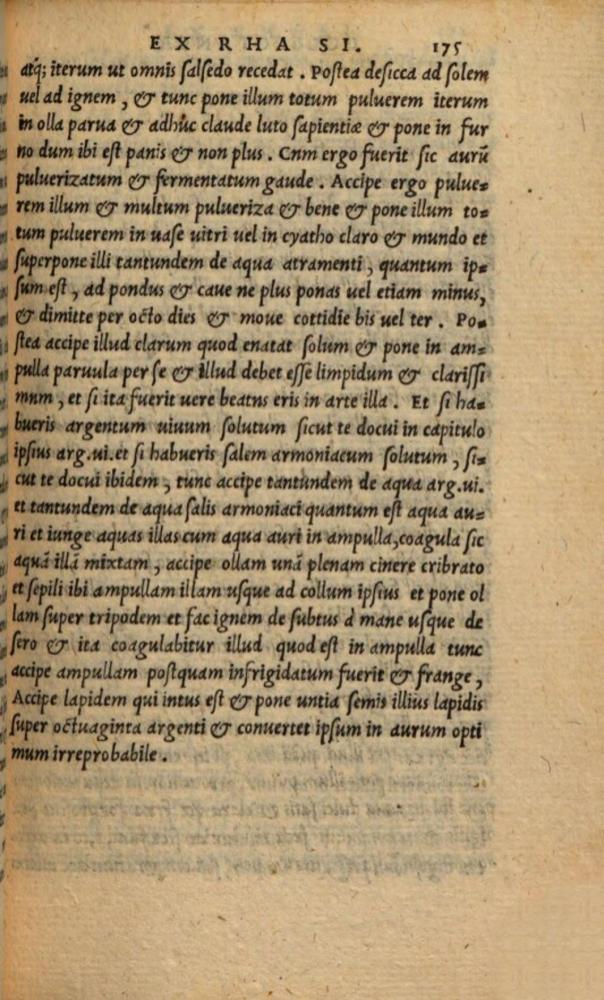 EX RHA SI. 175
atq; iterum ut omnis ſalſedo recedat . Poſtea deſicca ad ſolem
uel ad ignem , & tunc pone illum totum puluerem iterum
in olla parua & adhûc claude luto ſapientiæ & pone in fur
no dum ibi eſt panis & non plus . Cnm ergo fuerit ſic aurũ
puluerizatum & fermentatum gaude . Accipe ergo pulue=
rem illum & multum pulueriza & bene & pone illum to=
tum puluerem in uaſe uitri uel in cyatho claro & mundo et
ſuperpone illi tantundem de aqua atramenti , quantum ip=
ſum eſt , ad pondus & caue ne plus ponas uel etiam minus,
& dimitte per octo dies & moue cottidie bis uel ter . Po=
ſtea accipe illud clarum quod enatat ſolum & pone in am=
pulla paruula per ſe & illud debet eſſe limpidum & clariſſi
mnm , et ſi ita fuerit uere beatns eris in arte illa . Et ſi ha=
bueris argentum uiuum ſolutum ſicut te docui in capitulo
ipſius arg.ui.et ſi habueris ſalem armoniacum ſolutum , ſi=
cut te docui ibidem , tunc accipe tantundem de aqua arg.ui.
et tantundem de aqua ſalis armoniaci quantum eſt aqua au=
ri et iunge aquas illas cum aqua auri in ampulla,coagula ſic
aquã illã mixtam , accipe ollam unã plenam cinere cribrato
et ſepili ibi ampullam illam uſque ad collum ipſius et pone ol
lam ſuper tripodem et fac ignem de ſubtus à mane uſque de
ſero & ita coagulabitur illud quod eſt in ampulla tunc
accipe ampullam poſtquam infrigidatum fuerit & frange ,
Accipe lapidem qui intus eſt & pone untia ſemis illius lapidis
ſuper octuaginta argenti & conuertet ipſum in aurum opti
mum irreprobabile .